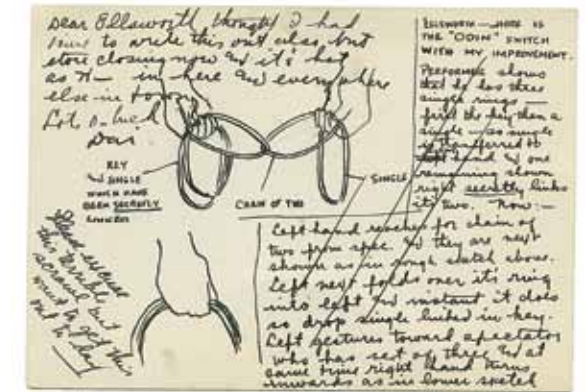 Dear Ellsworth thought I had
time to write this out also, but
store closing now and it's hot
as H— in here and everywhere
else in
Lots o luck
Dai
KEY
& SINGLE
WHICH HAVE
BEEN SECRETLY
LINKED
CHAIN OF TWO
SINGLE
Please excuse
this terrible
scrawl but
want to get this
out to day
ELLSWORTH — HERE IS
THE "ODIN" SWITCH
WITH MY IMPROVEMENT.
PERFORMER shows
that he has three
single rings —
first the key then a
single — as single
is transferred to
left hand & one
remaining shown
right secretly links
it's two. Now: —
Left hand reaches for chain of
two from spec. & they are next
shown as in rough sketch above.
Left next folds over it's ring
into left and instant it does
so drop single linked in key.
Left gestures toward spectator
who has set of three & at
same time right hand turns
inwards as in lower sketch